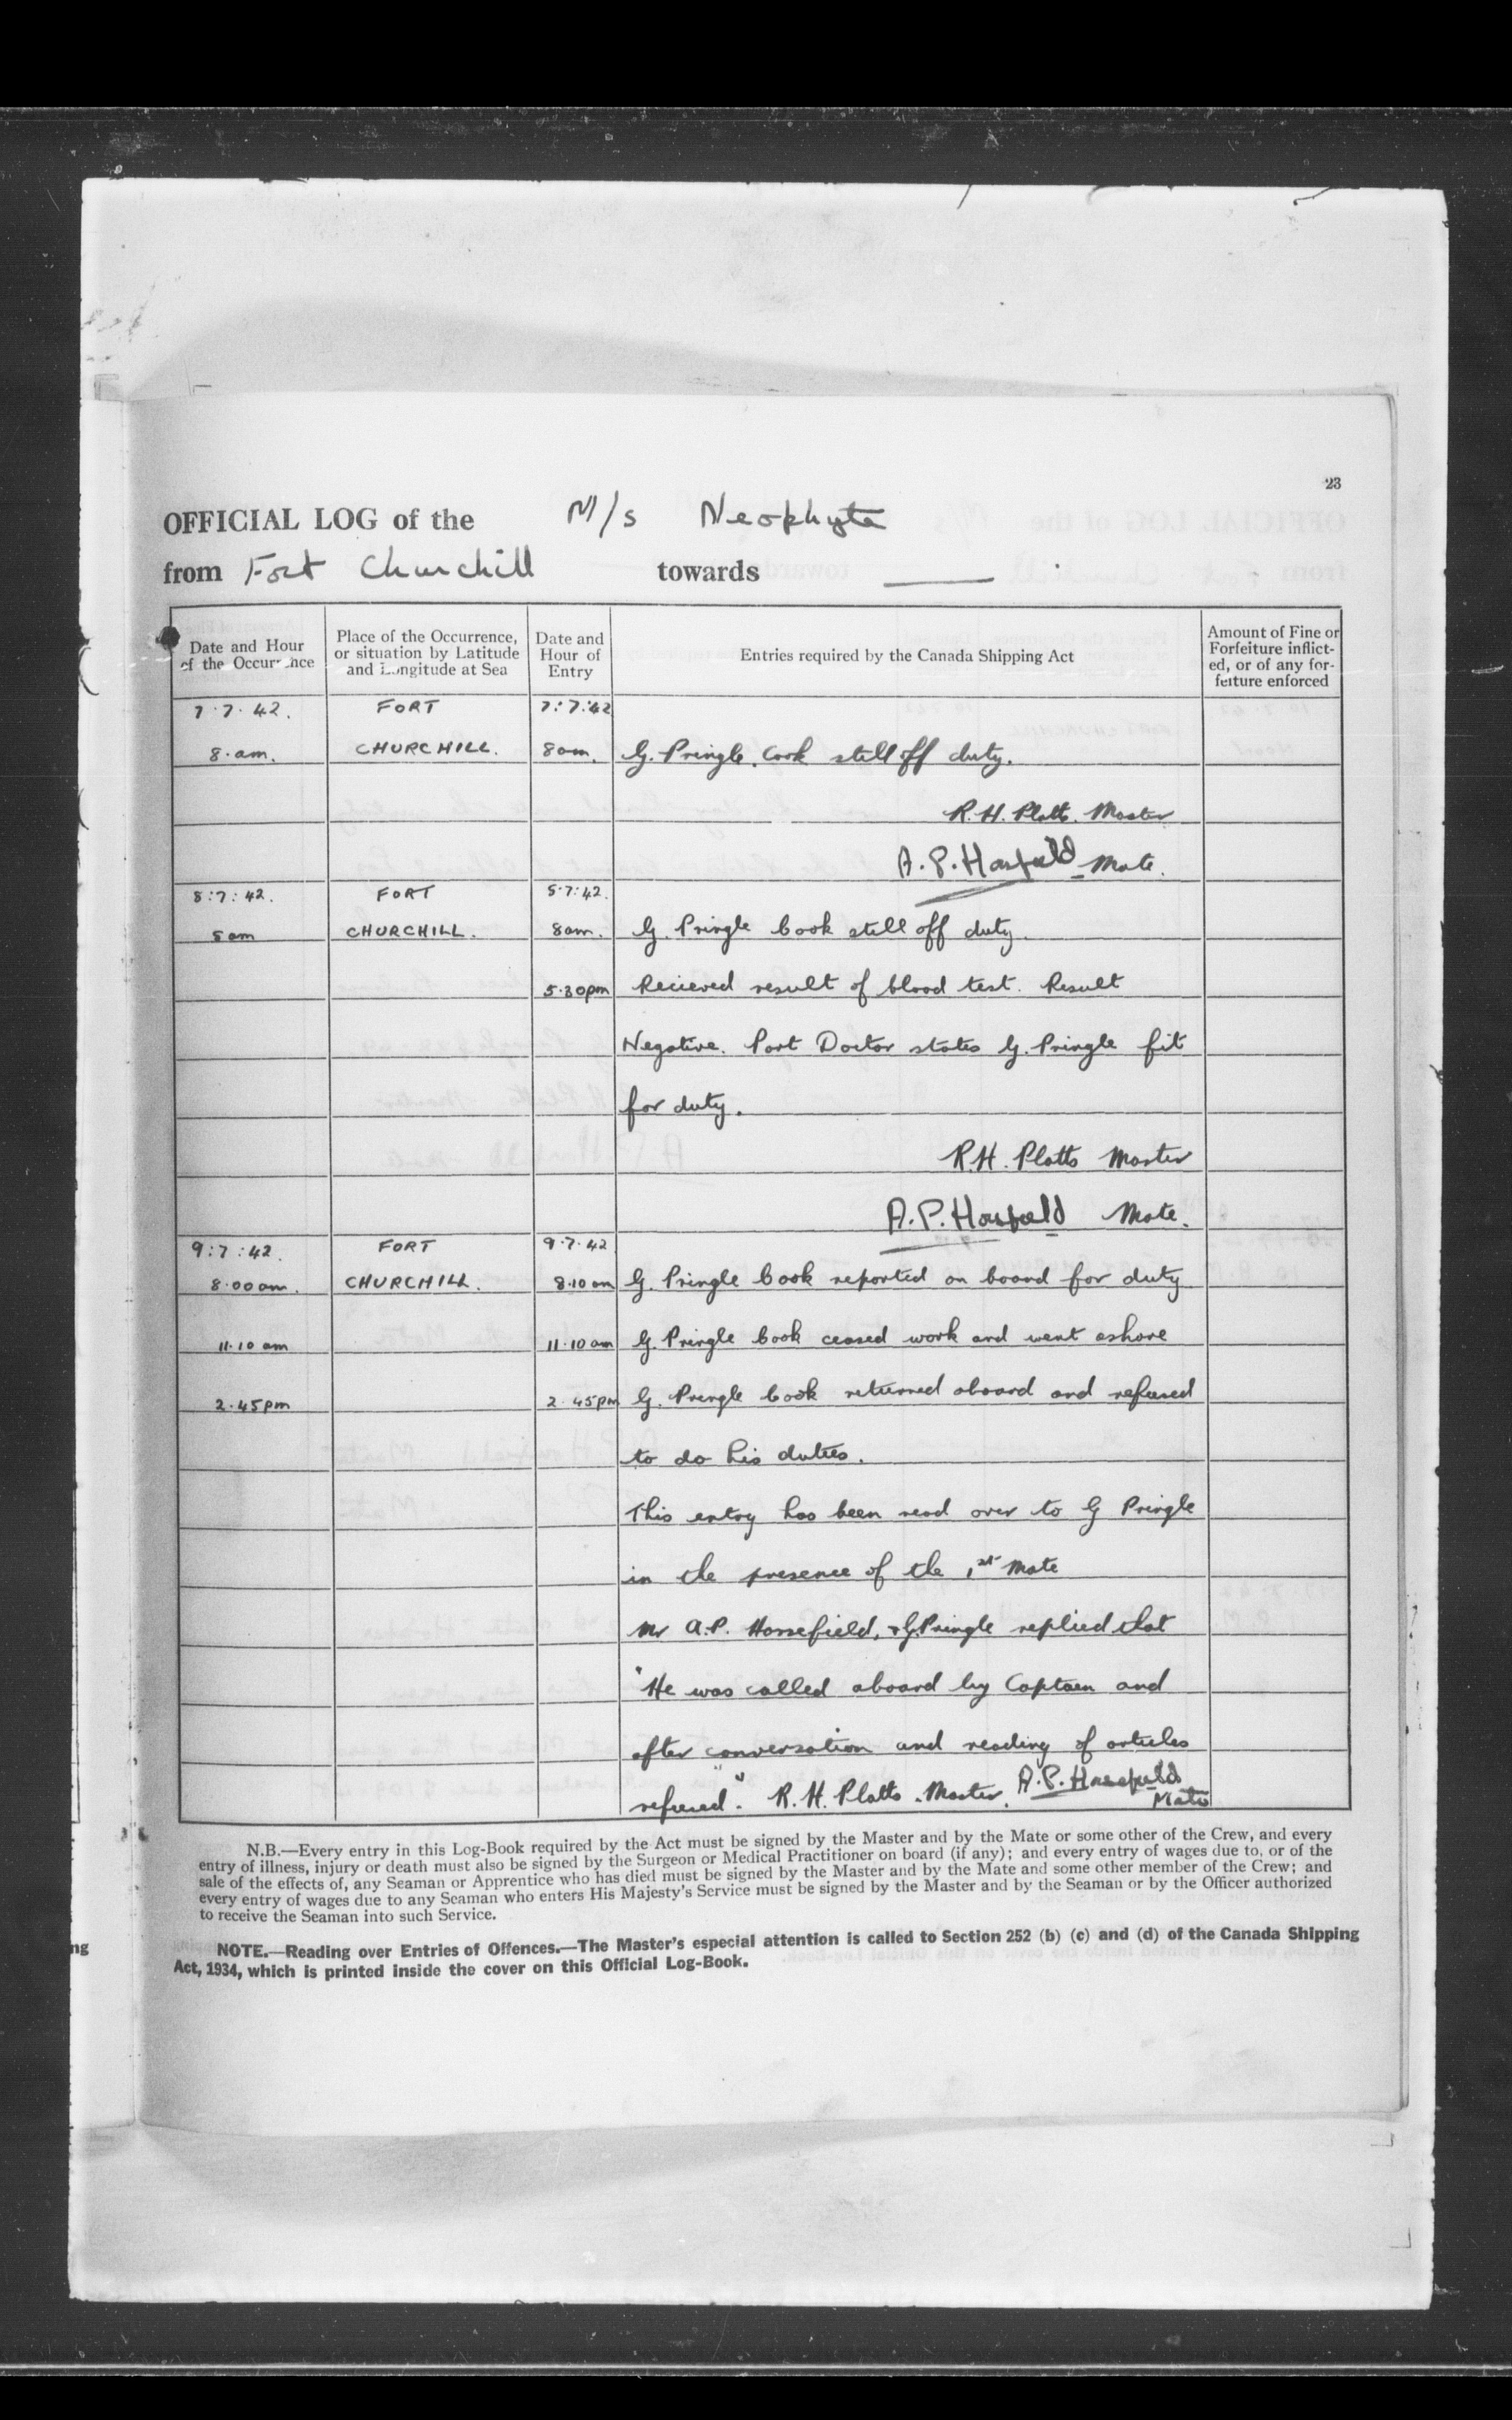 23
OFFICIAL LOG of the M/s Neophyte
from Fort Churchill towards ———
Date and Hour of the Occurrence
Place of the Occurrence, or situation by Latitude and Longitude at Sea
Date and Hour of Entry
Entries required by the Canada Shipping Act
Amount of Fine or Forfeiture inflicted, or of any forfeiture enforced
7.7.42. FORT 7:7:42
8.am. CHURCHILL. 8am. G. Pringle. Cook still off duty.
R.H. Platts. Master
A.P. Horsfield Mate.
8:7:42. FORT 8.7:42.
8am CHURCHILL. 8am. G. Pringle Cook still off duty.
5.30pm Recieved result of blood test. Result
Negative. Port Doctor states G. Pringle fit
for duty.
R.H. Platts Master
A.P. Horsfield Mate.
9:7:42. FORT 9.7.42
8.00am. CHURCHILL. 8.10am G. Pringle Cook reported on board for duty
11.10 am 11.10am G. Pringle Cook ceased work and went ashore
2.45pm 2.45pm G. Pringle Cook returned aboard and refused
to do his duties.
This entry has been read over to G Pringle
in the presence of the 1st Mate
Mr A.P. Horsefield, & G. Pringle replied that
"He was called aboard by Captain and
after conversation and reading of articles
refused". R.H. Platts. Master. A.P. Horsefield
Mate
N.B.—Every entry in this Log-Book required by the Act must be signed by the Master and by the Mate or some other of the Crew, and every
entry of illness, injury or death must also be signed by the Surgeon or Medical Practitioner on board (if any); and every entry of wages due to, or of the
sale of the effects of, any Seaman or Apprentice who has died must be signed by the Master and by the Mate and some other member of the Crew; and
every entry of wages due to any Seaman who enters His Majesty's Service must be signed by the Master and by the Seaman or by the Officer authorized
to receive the Seaman into such Service.
NOTE.—Reading over Entries of Offences.—The Master's especial attention is called to Section 252 (b) (c) and (d) of the Canada Shipping
Act, 1934, which is printed inside the cover on this Official Log-Book.
ng